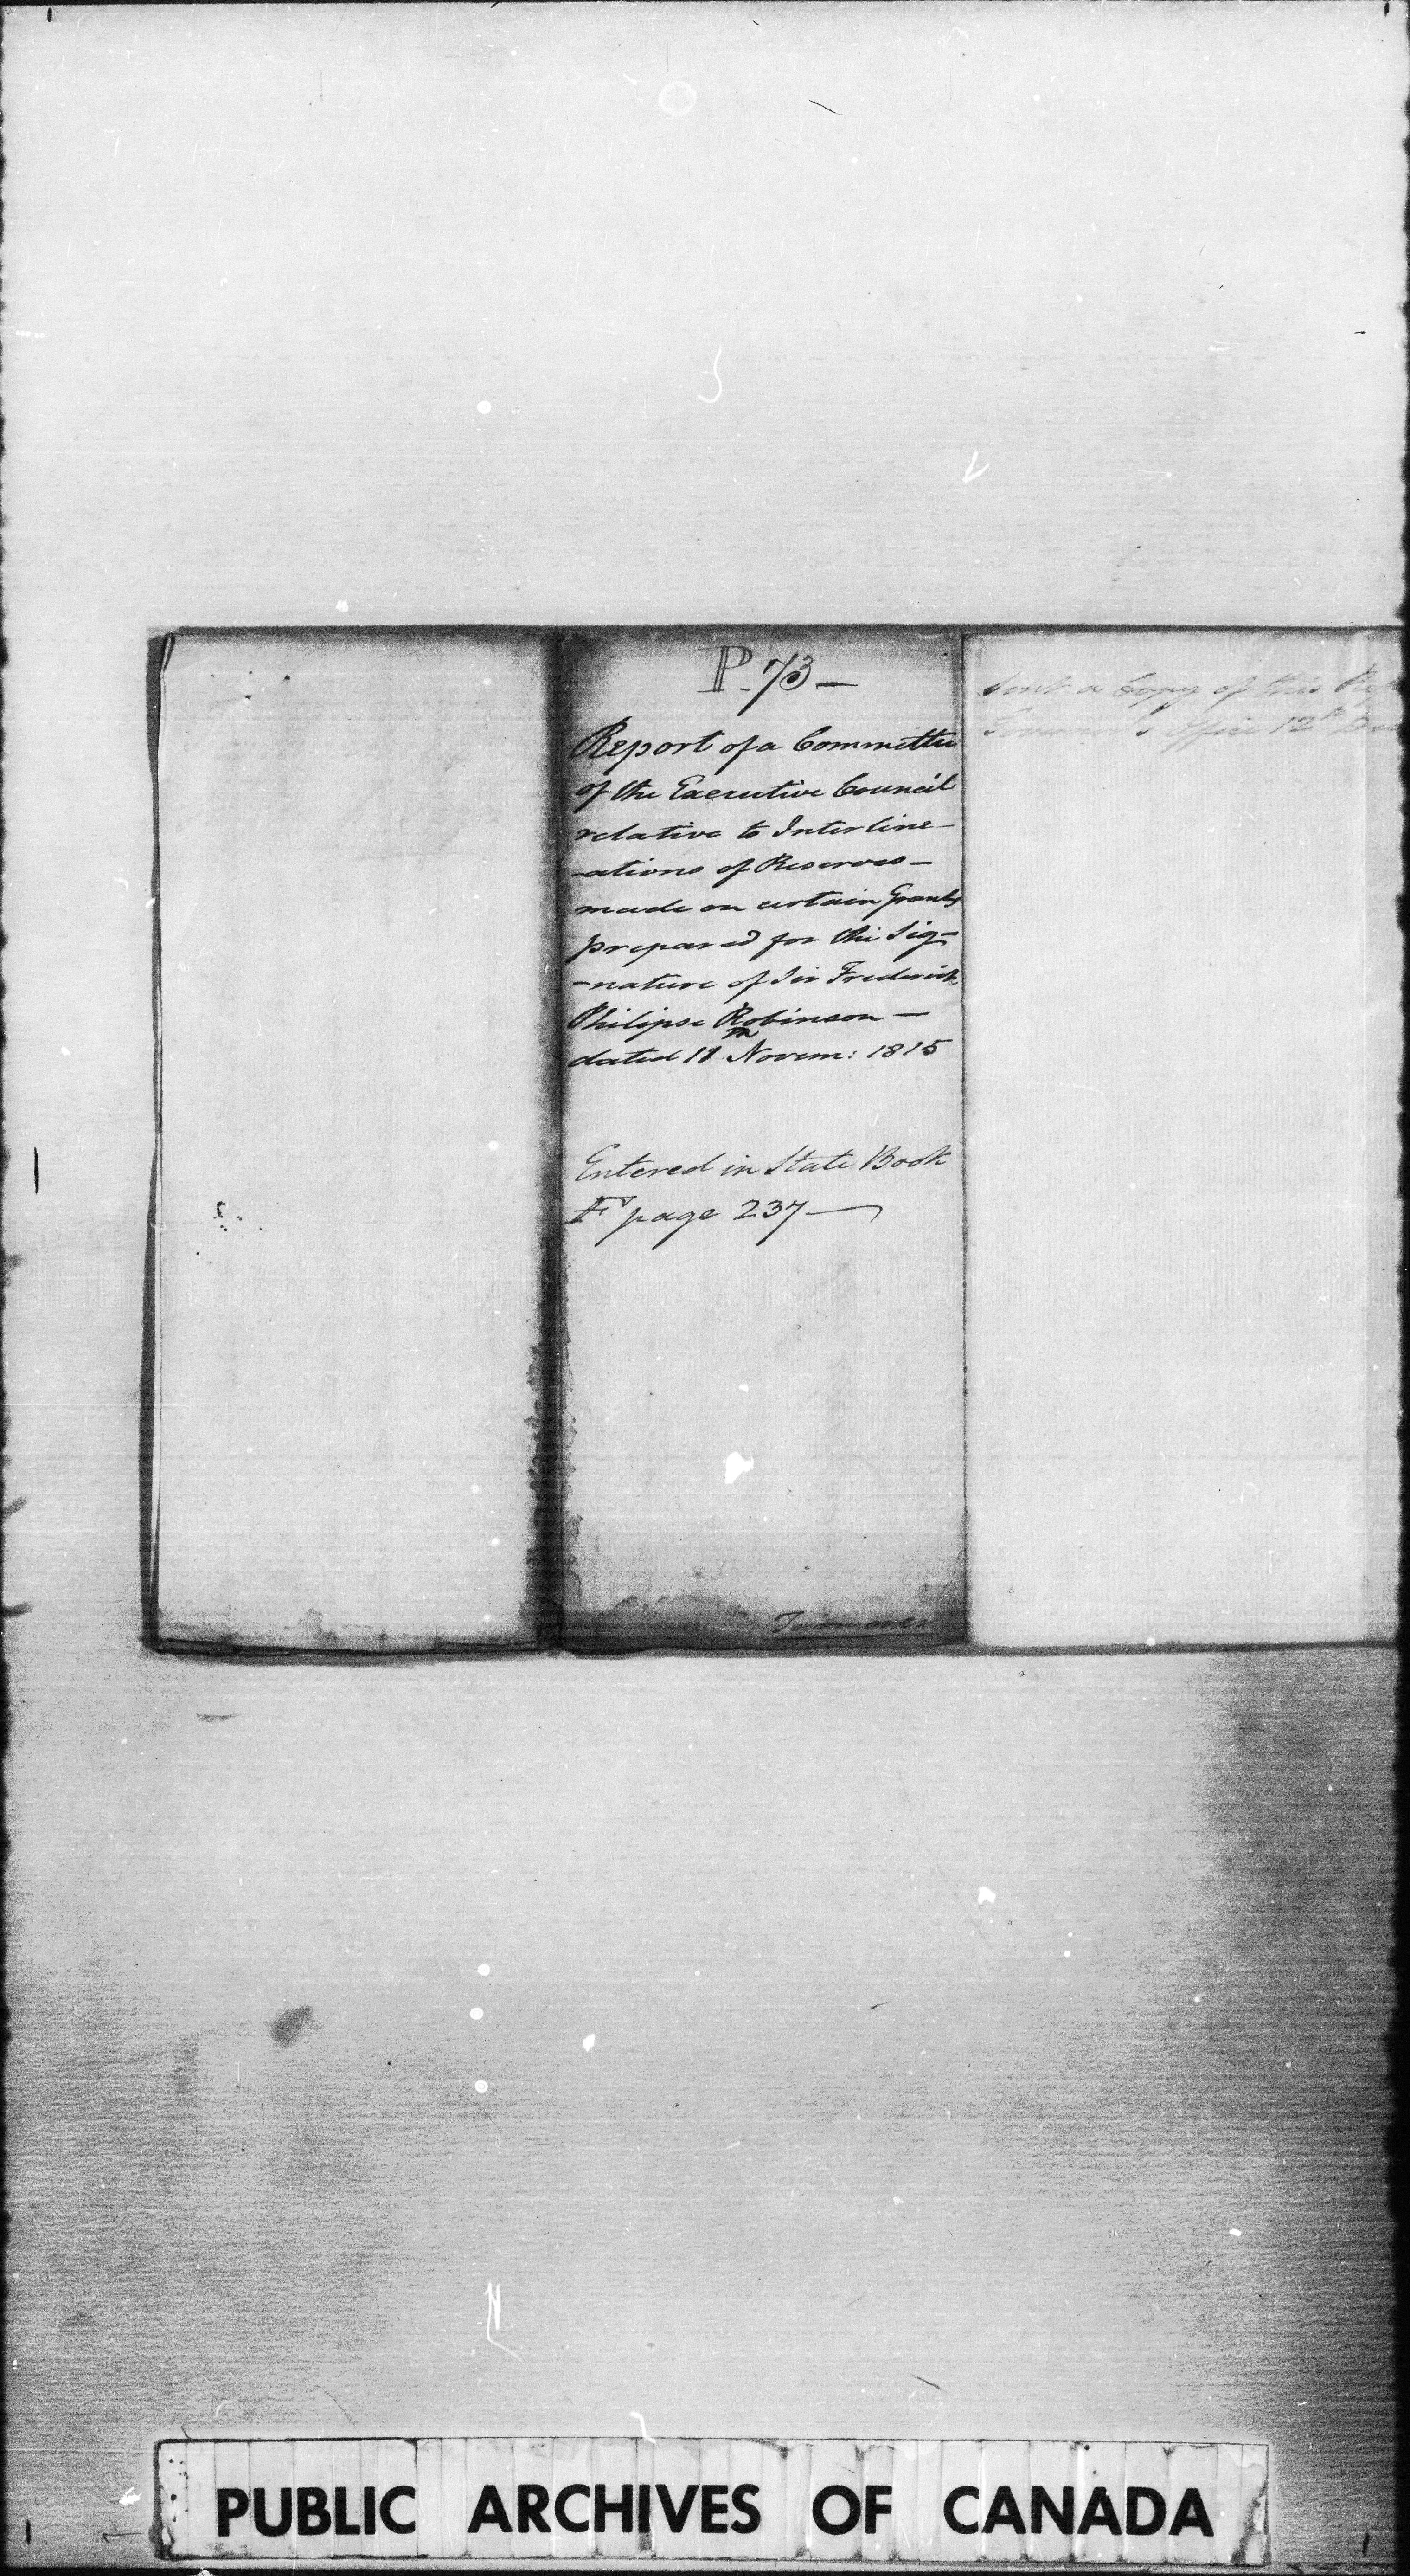 P. 73 —
Report of a Committee
of the Executive Council
relative to Interline-
-ations of Reserves —
made on certain Grants
prepared for the Sig-
-nature of Sir Frederick
Philipse Robinson —
dated 11 Novem: 1815
Entered in State Book
F page 237 —
Turn over
Sent a Copy of this
Governor's Office 12th
PUBLIC ARCHIVES OF CANADA